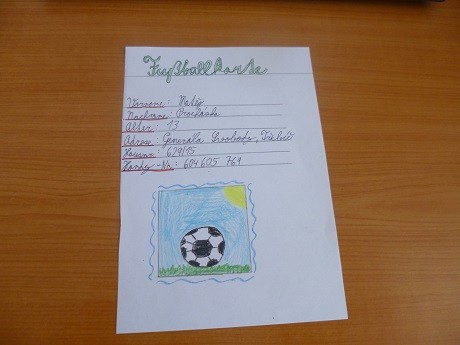 Fußballkarte
Vorname: Matěj
Nachname: Procházka
Alter: 13
Adress: Generála Svobody,
Hausnr: 679/15
Handy-Nr.: 604 605 761